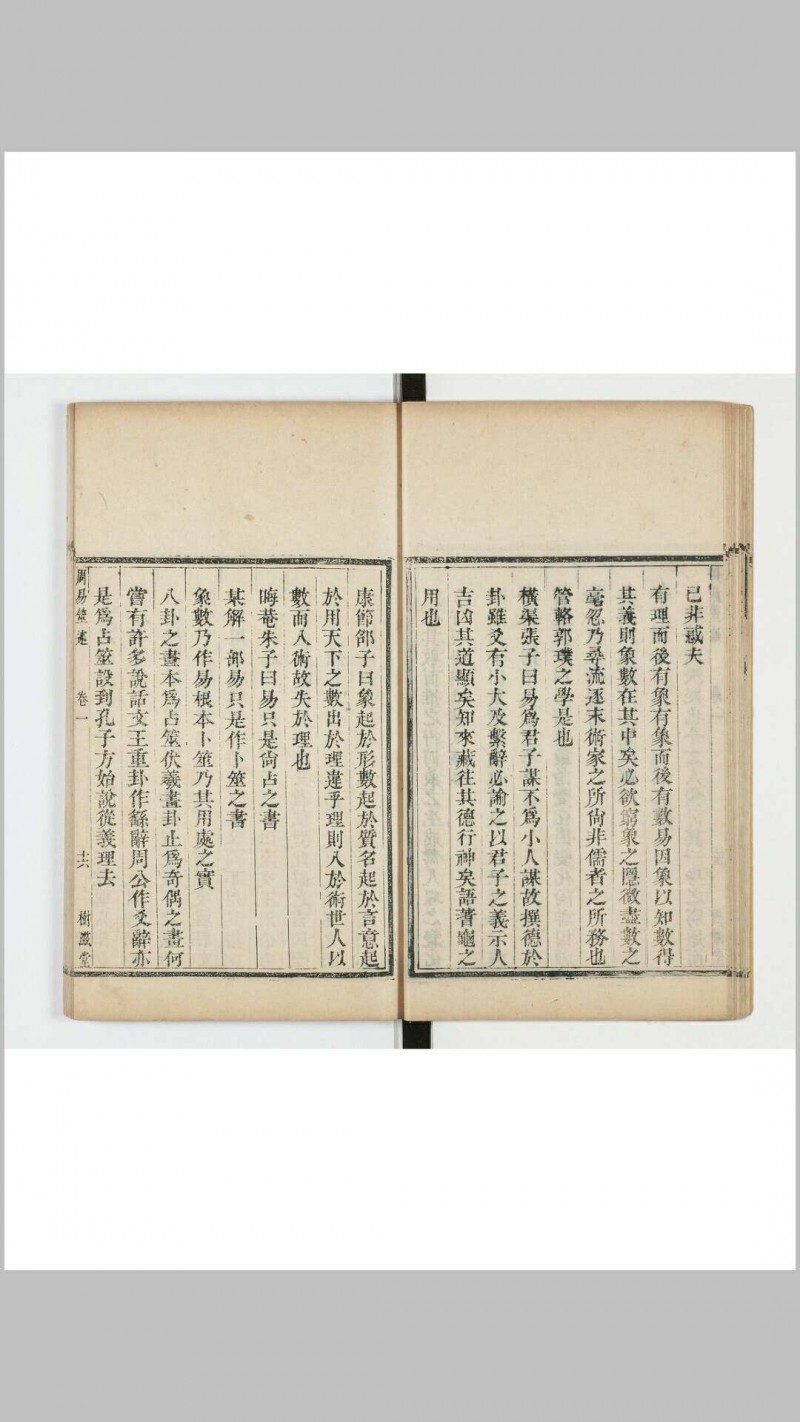 已非惑夫
有理而後有象有象而後有數易因象以知數得
其義則象數在其中矣必欲窮象之隱微盡數之
毫忽乃尋流逐末術家之所尙非儒者之所務也
管輅郭璞之學是也
橫渠張子曰易爲君子謀不爲小人謀故撰德於
卦雖爻有小大及繫辭必諭之以君子之義示人
吉凶其道顯矣知來藏往其德行神矣語蓍龜之
用也
康節邵子曰象起於形數起於質名起於言意起
於用天下之數出於理違乎理則入於術世人以
數而入術故失於理也
晦菴朱子曰易只是尙占之書
某解一部易只是作卜筮之書
象數乃作易根本卜筮乃其用處之實
八卦之畫本爲占筮伏羲畫卦止爲奇偶之畫何
嘗有許多說話文王重卦作繇辭周公作爻辭亦
是爲占筮設到孔子方始說從義理去
周易筮述 卷一 十六 樹滋堂